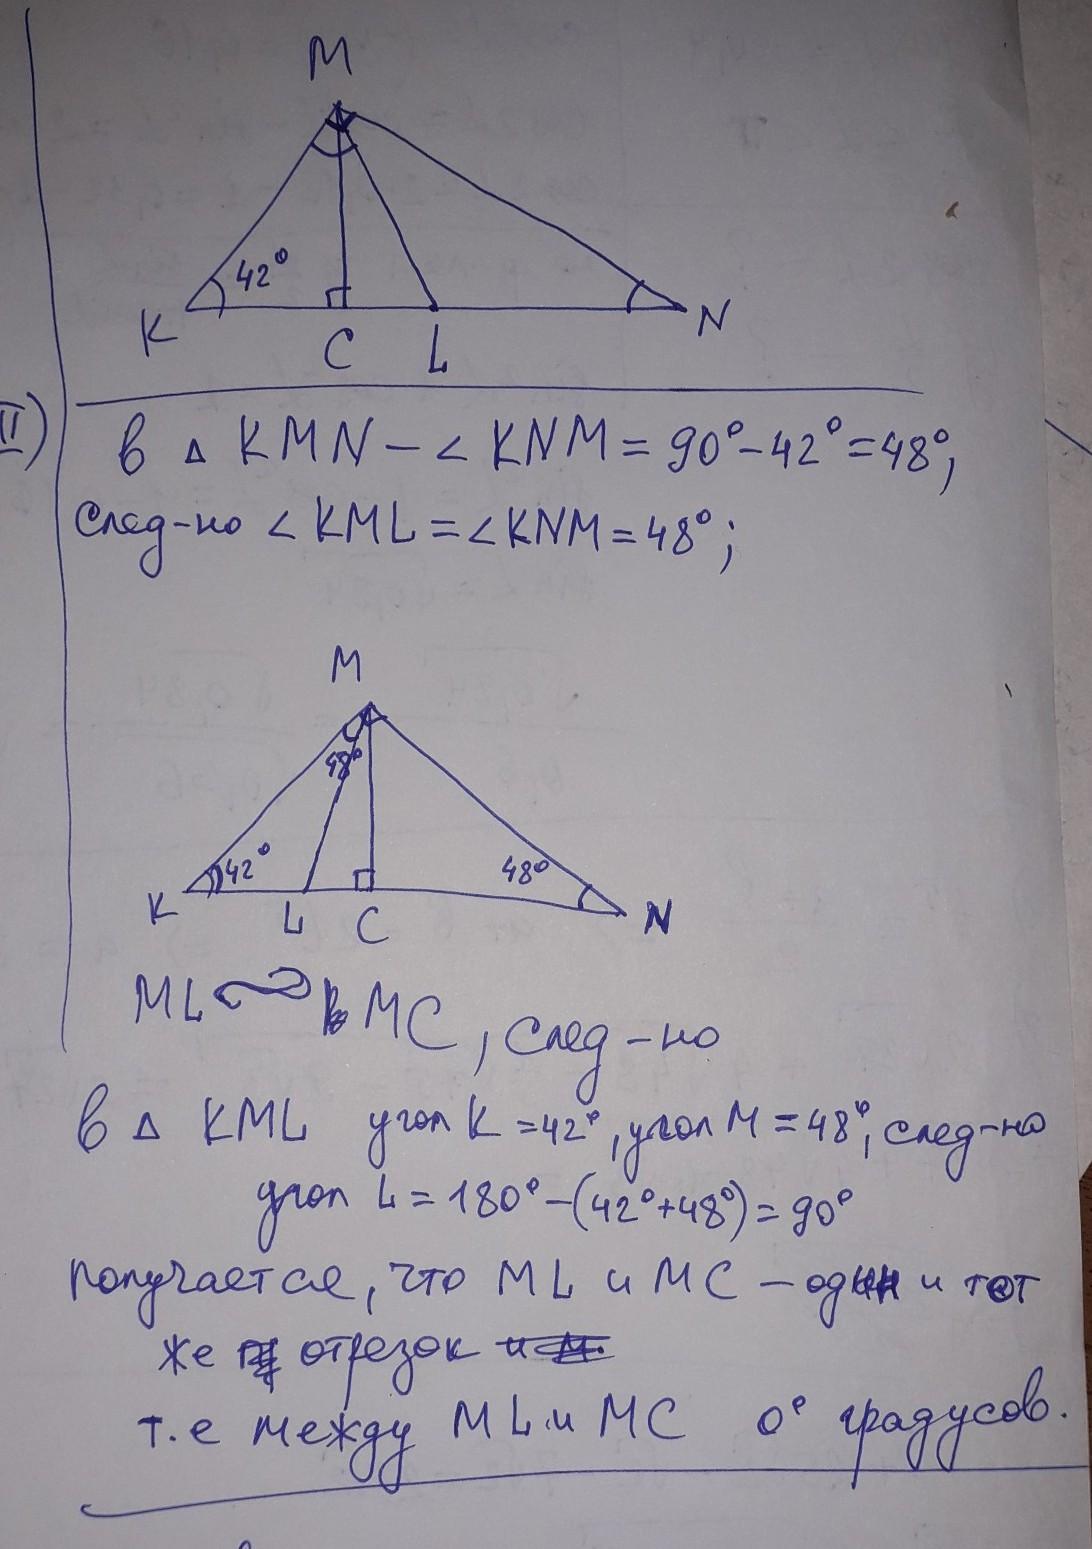 M
42°
K C L N
II)
В △ KMN – ∠ KNM = 90° – 42° = 48°,
след-но ∠ KML = ∠ KNM = 48°;
M
48°
42° 48°
K L C N
ML MC, след-но
В △ KML угол K = 42°, угол M = 48°, след-но
угол L = 180° – (42° + 48°) = 90°
получается, что ML и MC – один и тот
же отрезок
т.е между ML и MC 0° градусов.